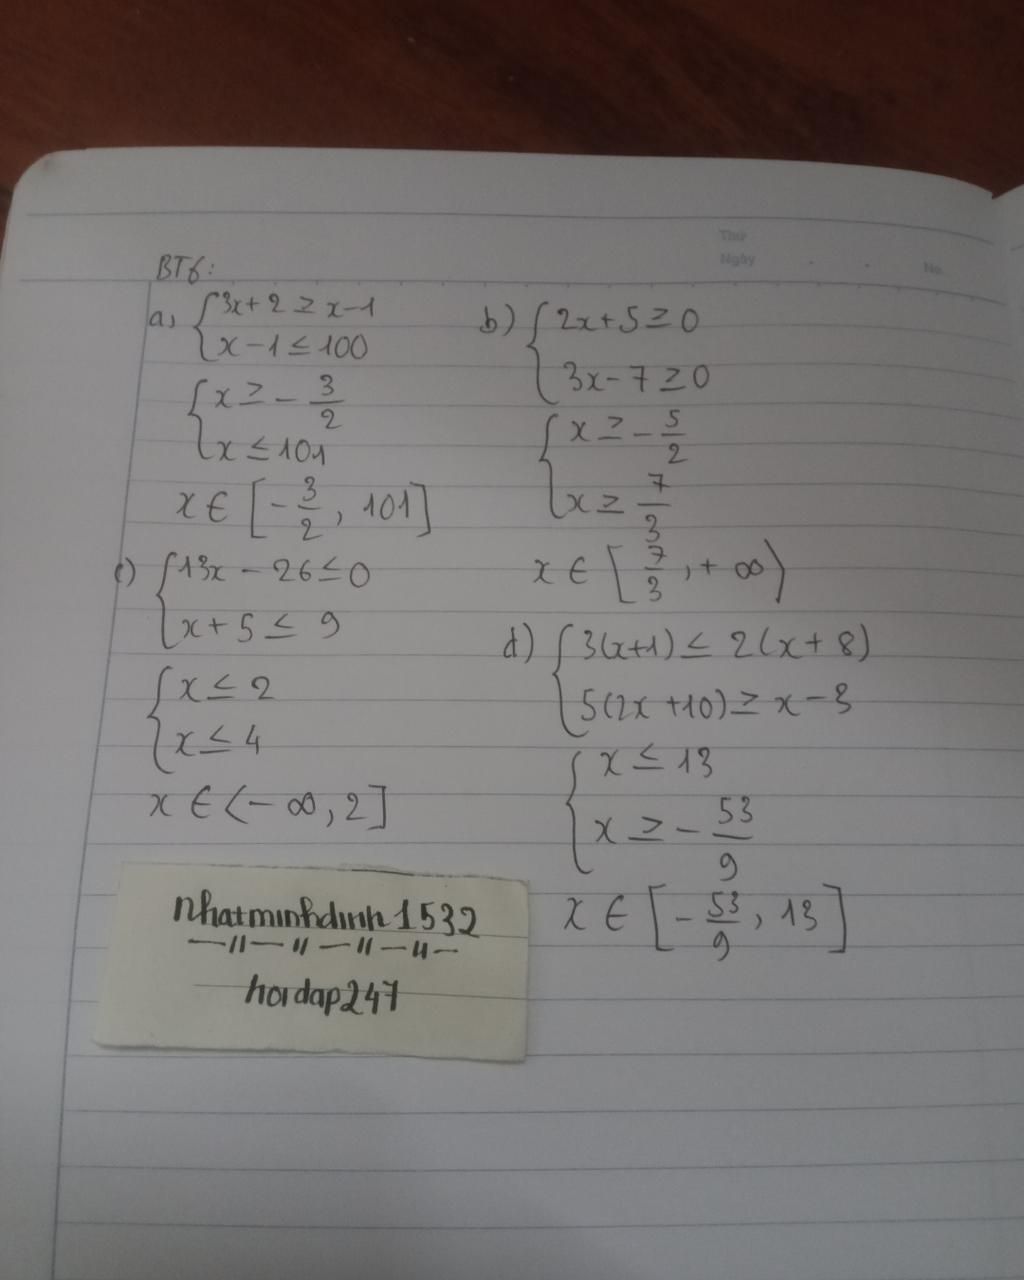 Thứ
Ngày
No.
BT6:
a, { 3x + 2 ≥ x - 1
x - 1 ≤ 100
{ x ≥ - 3/2
x ≤ 101
x ∈ [ - 3/2 , 101 ]
b) { 2x + 5 ≥ 0
3x - 7 ≥ 0
{ x ≥ - 5/2
x ≥ 7/3
x ∈ [ 7/3 , + ∞ )
c) { 13x - 26 ≤ 0
x + 5 ≤ 9
{ x ≤ 2
x ≤ 4
x ∈ ( - ∞ , 2 ]
d) { 3(x+1) ≤ 2(x + 8)
5(2x + 10) ≥ x - 3
{ x ≤ 13
x ≥ - 53/9
x ∈ [ - 53/9 , 13 ]
nhatminhdinh1532
— 11 — 11 — 11 — 11 —
hoidap247